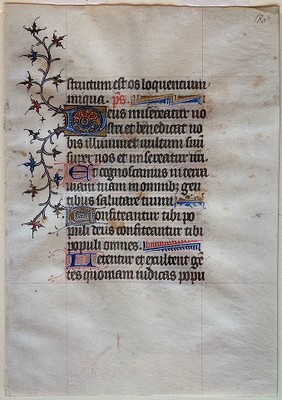 180
structum est os loquentium
iniqua. ps.
Deus misereatur no
stri et benedicat no
bis illuminet vultum suū
super nos et misereatur nri.
Et cognoscamus in terra
viam tuam in omnibz gen
tibus salutare tuum
Confiteantur tibi po
puli deus confiteantur tibi
populi omnes.
Letentur et exultent gē
tes quoniam iudicas popu